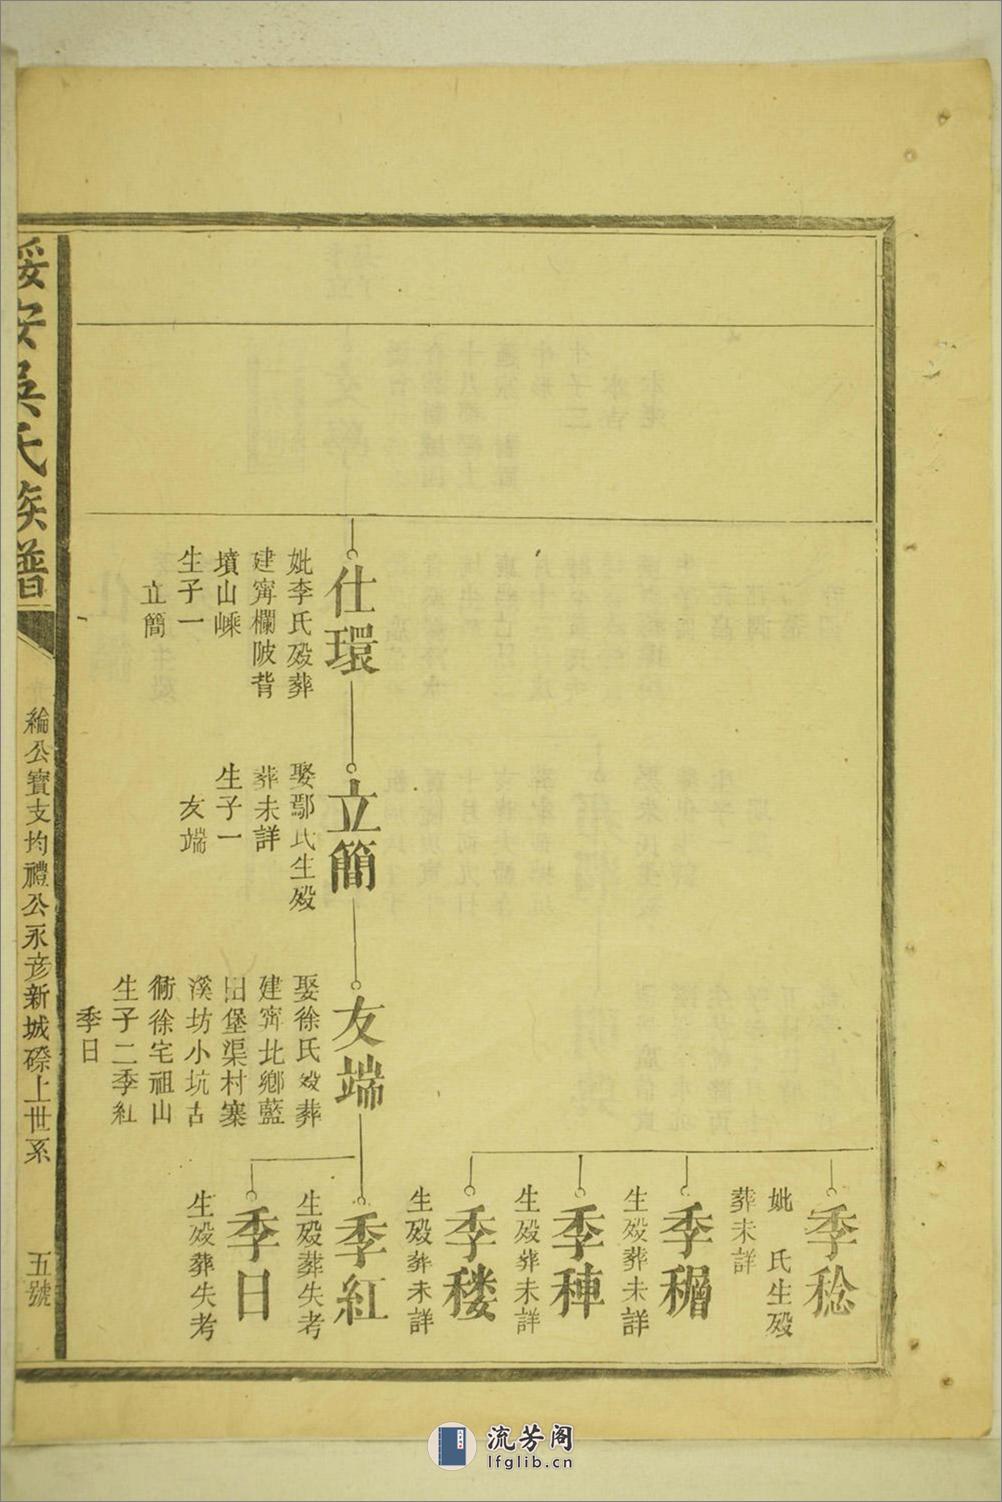 季稔
妣 氏生殁
葬未詳
季穯
生殁葬未詳
季𥠊
生殁葬未詳
季䅹
生殁葬未詳
仕環
妣李氏殁葬
建寧欄陂背
墳山嵊
生子一
立簡
立簡
娶鄢氏生殁
葬未詳
生子一
友端
友端
娶徐氏殁葬
建寧北鄉藍
田堡渠村寨
溪坊小坑古
衕徐宅祖山
生子二季紅
季日
季紅
生殁葬失考
季日
生殁葬失考
綏安吳氏族譜
綸公寳支均禮公永彦新城磜上世系
五號
流芳阁
lfglib.cn